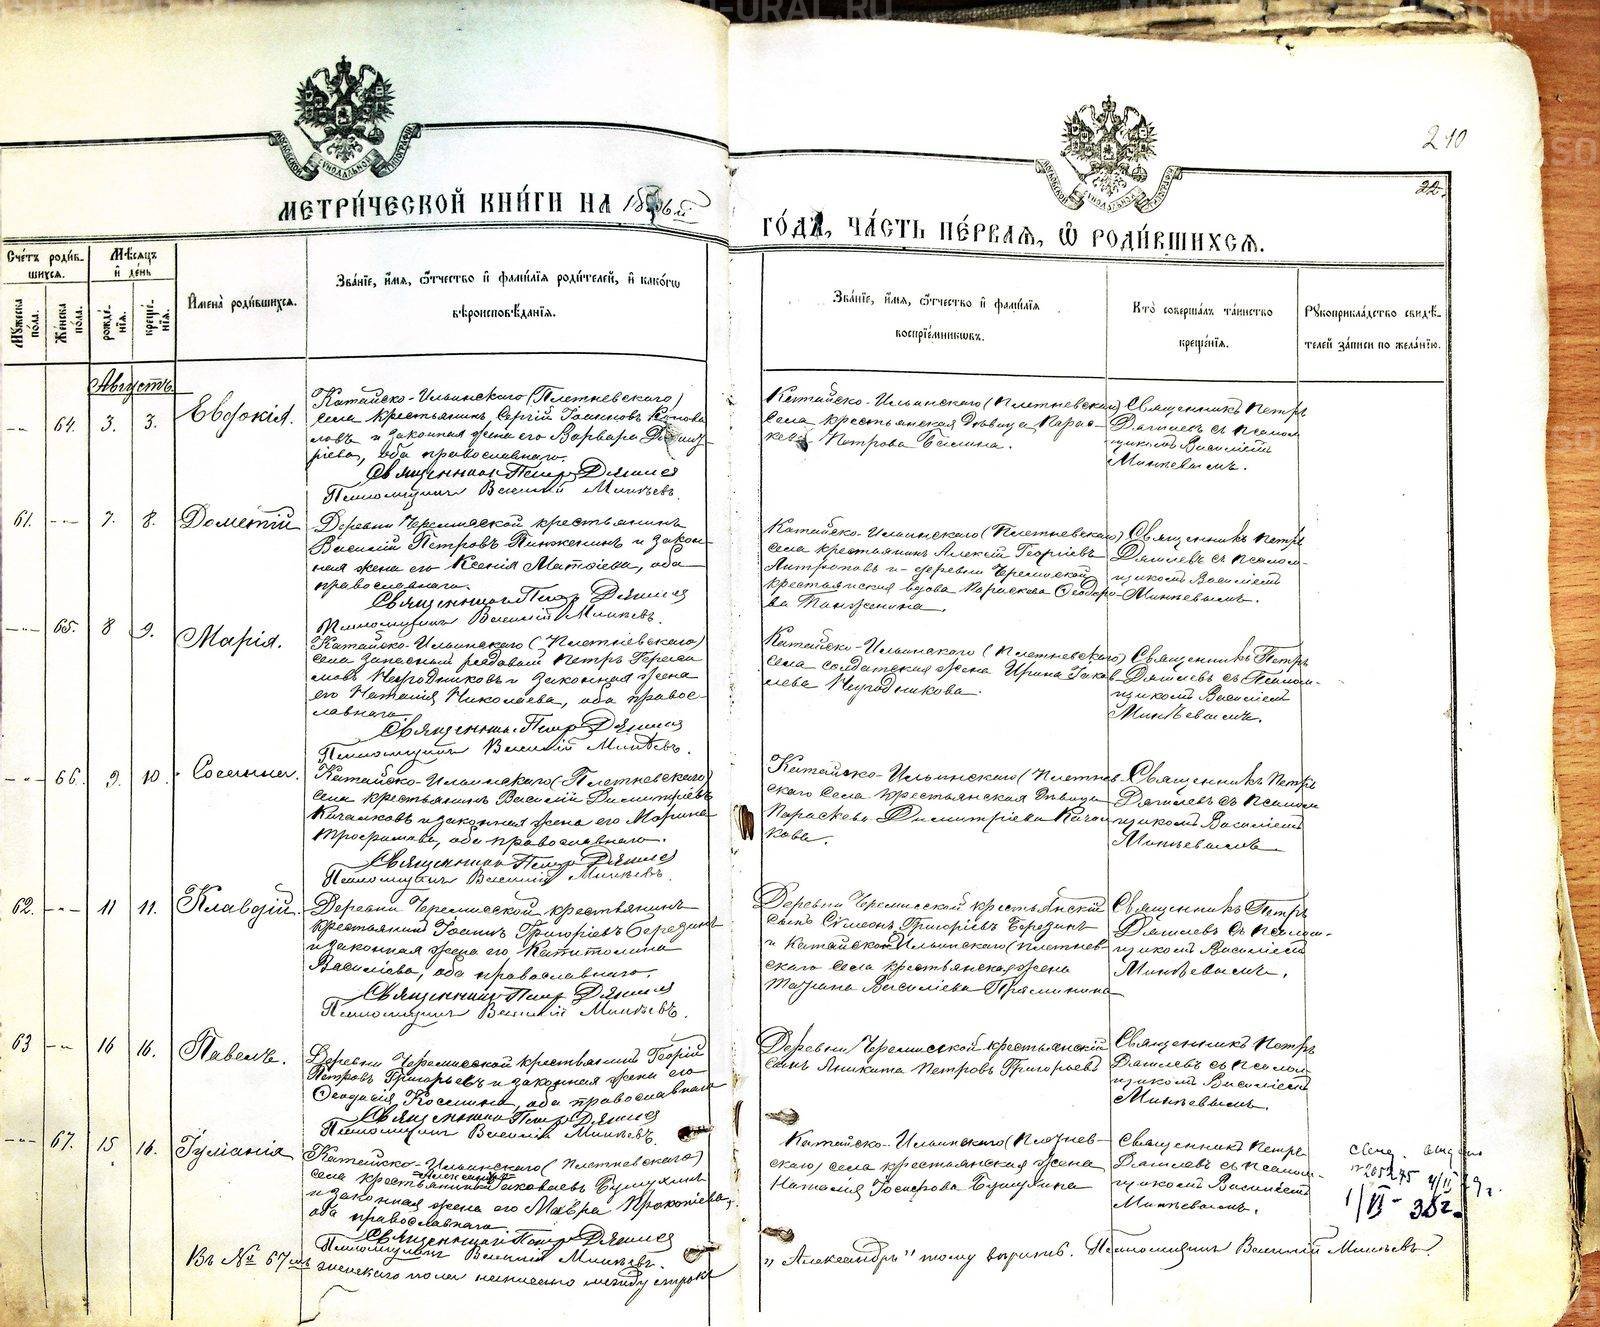 210
22.
МЕТРИ́ЧЕСКОЙ КНИ́ГИ НА 18 6й
ГО́ДА, ЧА́СТЬ ПЕ́РВАЯ, Ѡ РОДИ́ВШИХСЯ.
Сче́тъ роди́в-
шихся.
Мꙋжеска по́ла.
Же́нска по́ла.
Мѣ́сяцъ
и де́нь
рожде́-
нїя.
креще́-
нїя.
И́мена роди́вшихся.
Зва́нїе, и́мя, о́тчество и фами́лїя роди́телей, и како́гѡ
вѣроисповѣ́данїя.
Зва́нїе, и́мя, о́тчество и фами́лїя
воспрїе́мниковъ.
Кто̀ соверша́лъ та́инство
креще́нїя.
Рꙋкоприкла́дство свидѣ́-
телей за́писи по жела́нїю.
Августъ
64. 3. 3. Евдокія.
Катайско-Ильинскаго (Плетневскаго)
села крестьянинъ Сергій Іоанновъ
и законная жена его Варвара
оба православнаго.
Священникъ Петръ Дягилевъ
Псаломщикъ Василій Минѣевъ.
Катайско-Ильинскаго (Плетневскаго)
села крестьянская дѣвица Парас-
кева Петрова
Священникъ Петръ
Дягилевъ съ псалом-
щикомъ Василіемъ
Минѣевымъ.
61. 7. 8. Дометій
Деревни Черемисской крестьянинъ
Василій Петровъ Панженинъ и закон-
ная жена его Ксенія Матѳіева, оба
православнаго.
Священникъ Петръ Дягилевъ
Псаломщикъ Василій Минѣевъ.
Катайско-Ильинскаго (Плетневскаго)
села крестьянинъ Алексій Георгіевъ
Антроповъ и деревни Черемисской
крестьянская вдова Параскева Ѳеодоро-
ва Панженина.
Священникъ Петръ
Дягилевъ съ псалом-
щикомъ Василіемъ
Минѣевымъ.
65. 8 9. Марія.
Катайско-Ильинскаго (Плетневскаго)
села запасный рядовой Петръ Гераси-
мовъ Негодниковъ и законная жена
его Наталія Николаева, оба правос-
лавнаго
Священникъ Петръ Дягилевъ
Псаломщикъ Василій Минѣевъ.
Катайско-Ильинскаго (Плетневскаго)
села солдатская жена Ирина Іаков-
лева Негодникова.
Священникъ Петръ
Дягилевъ съ Псалом-
щикомъ Василіемъ
Минѣевымъ.
66. 9. 10. Сосанна.
Катайско-Ильинскаго (Плетневскаго)
села крестьянинъ Василій Димитріевъ
Качалковъ и законная жена его Марина
Трофимова, оба православнаго.
Священникъ Петръ Дягилевъ
Псаломщикъ Василій Минѣевъ.
Катайско-Ильинскаго (Плетнев-
скаго села крестьянская дѣвица
Параскева Димитріева Качал-
кова.
Священникъ Петръ
Дягилевъ съ псалом-
щикомъ Василіемъ
Минѣевымъ
62. 11 11. Клавдій.
Деревни Черемисской крестьянинъ
крестьянинъ Іоаннъ Григоріевъ Березинъ
и законная жена его Капитолина
Василіева, оба православнаго.
Священникъ Петръ Дягилевъ
Псаломщикъ Василій Минѣевъ.
Деревни Черемисской крестьянскій
сынъ Сѵмеонъ Григоріевъ Березинъ
и Катайско-Ильинскаго (Плетнев-
скаго села крестьянская жена
Татіана Василіева Пряминина
Священникъ Петръ
Дягилевъ съ псалом-
щикомъ Василіемъ
Минѣевымъ.
63 16 16. Павелъ.
Деревни Черемисской крестьянинъ Георгій
Петровъ Григорьевъ и законная жена его
Ѳеодосія Космина, оба православнаго
Священникъ Петръ Дягилевъ
Псаломщикъ Василій Минѣевъ.
Деревни Черемисской крестьянскій
сынъ Никита Петровъ Григорьевъ
Священникъ Петръ
Дягилевъ съ псалом-
щикомъ Василіемъ
Минѣевымъ.
67. 15 16. Іуліанія
Катайско-Ильинскаго (Плетневскаго)
Александръ
села крестьянинъ Іаковлевъ
и законная жена его Мавра Прокопіева,
оба православнаго.
Священникъ Петръ Дягилевъ
Псаломщикъ Василій Минѣевъ.
Катайско-Ильинскаго (Плетнев-
скаго) села крестьянская жена
Наталія Іосифова
Священникъ Петръ
Дягилевъ съ псалом-
щикомъ Василіемъ
Минѣевымъ.
1/VI- 38г.
Въ № 67мъ женскаго пола написано между строкъ
„Александръ" тому вѣрить. Псаломщикъ Василій Минѣевъ.